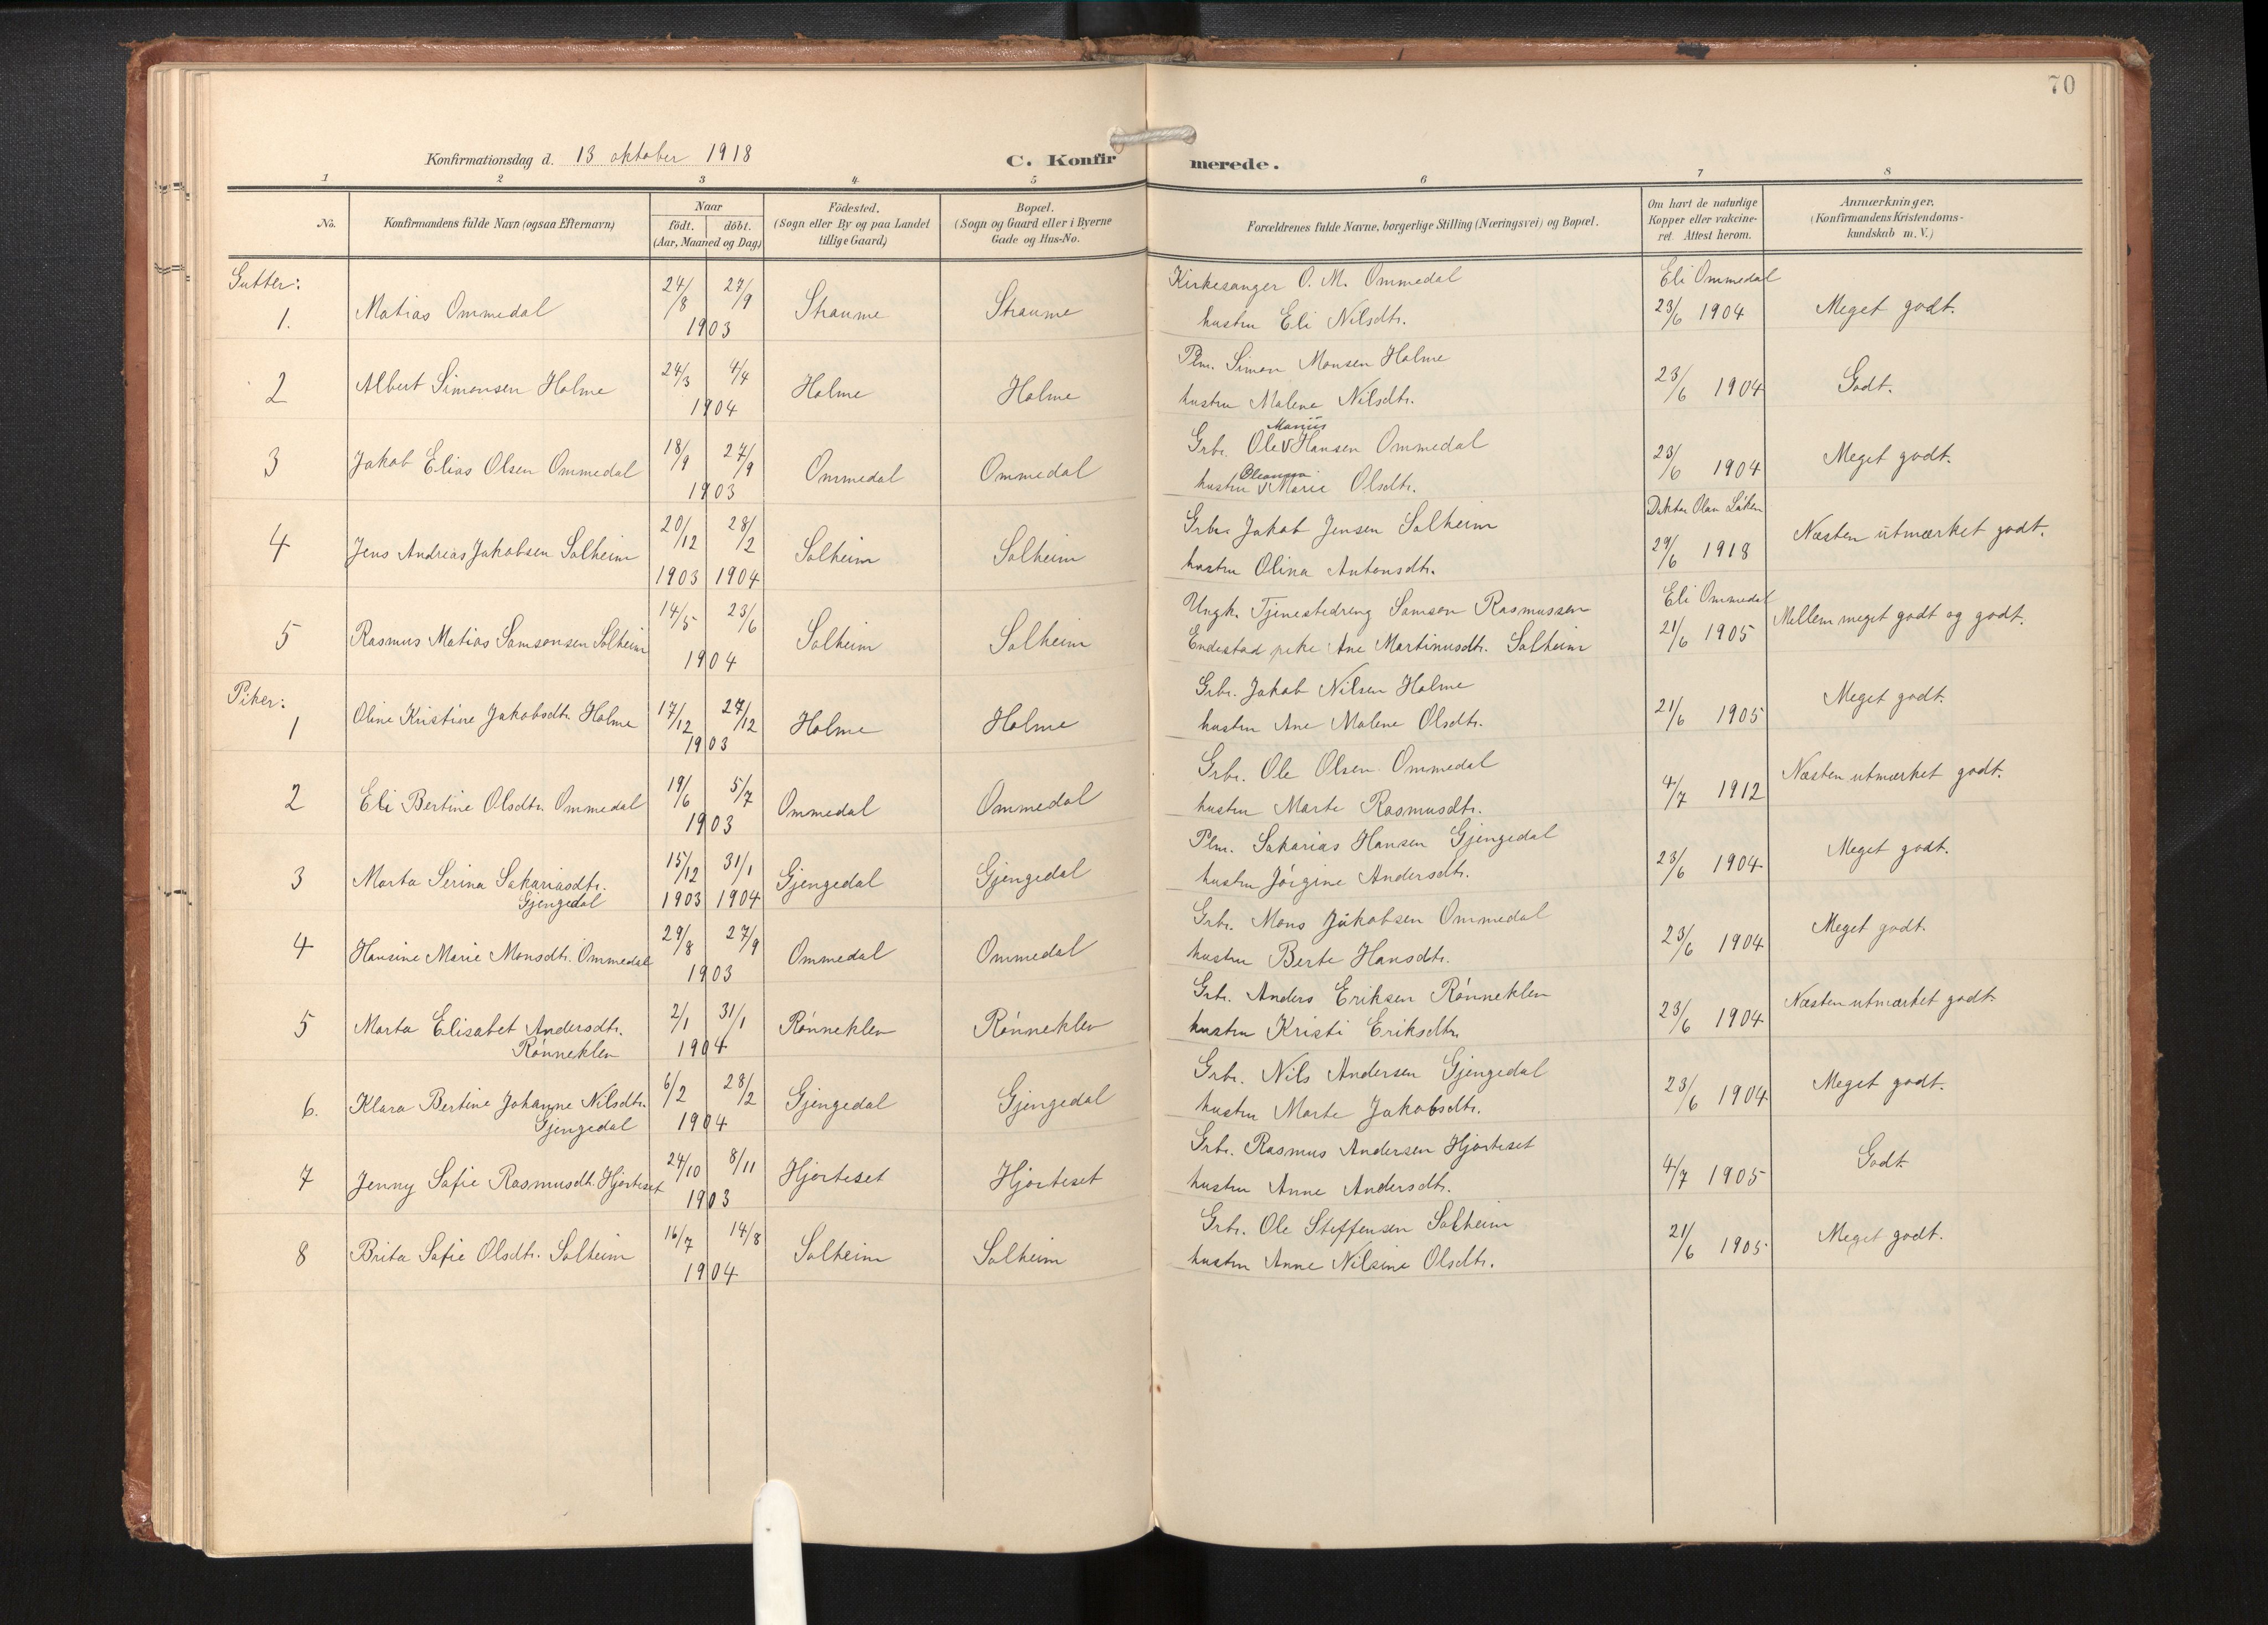 70
Konfirmationsdag d. 13 oktober 1918
C. Konfirmerede.
1 2 3 4 5 6 7 8
No.
Konfirmandens fulde Navn (ogsaa Efternavn)
Naar
födt. döbt.
(Aar, Maaned og Dag)
Födested.
(Sogn eller By og paa Landet
tillige Gaard)
Bopæl.
(Sogn og Gaard eller i Byerne
Gade og Hus-No.
Forældrenes fulde Navne, borgerlige Stilling (Næringsvei) og Bopæl.
Om havt de naturlige
Kopper eller vakcine-
ret. Attest herom.
Anmærkninger.
(Konfirmandens Kristendoms-
kundskab m. V.)
Gutter:
1. Matias Ommedal 24/8 27/9 1903 Straume Straume
Kirkesanger O. M. Ommedal
hustru Eli Nilsdtr.
Eli Ommedal
23/6 1904 Meget godt.
2 Albert Simonsen Holme 24/3 4/4 1904 Holme Holme
Plm. Simon Monsen Holme
hustru Malene Nilsdtr.
23/6 1904 Godt.
3 Jakob Elias Olsen Ommedal 18/9 27/9 1903 Ommedal Ommedal
Marius
Grbr. Ole v Hansen Ommedal
Oleanna
hustru v Marie Olsdtr.
23/6 1904 Meget godt.
4 Jens Andreas Jakobsen Solheim 20/12 28/2 1903 1904 Solheim Solheim
Grbr. Jakob Jensen Solheim
hustru Olina Antonsdtr.
Doktor Olav
29/6 1918 Næsten utmærket godt.
5 Rasmus Matias Samsonsen Solheim 14/5 23/6 1904 Solheim Solheim
Ungk. Tjenestedreng Samson Rasmussen
Endestad pike Ane Martinusdtr. Solheim
Eli Ommedal
21/6 1905 Mellem meget godt og godt.
Piker:
1 Oline Kristine Jakobsdtr. Holme 17/12 27/12 1903 Holme Holme
Grbr. Jakob Nilsen Holme
hustru Ane Malene Olsdtr.
21/6 1905 Meget godt.
2 Eli Bertine Olsdtr. Ommedal 19/6 5/7 1903 Ommedal Ommedal
Grbr. Ole Olsen Ommedal
hustru Marte Rasmusdtr.
4/7 1912 Næsten utmærket godt.
3 Marta Serina Sakariasdtr.
Gjengedal 15/12 31/1 1903 1904 Gjengedal Gjengedal
Plm. Sakarias Hansen Gjengedal
hustru Jörgine Andersdtr.
23/6 1904 Meget godt.
4 Hansine Marie Monsdtr. Ommedal 29/8 27/9 1903 Ommedal Ommedal
Grbr. Mons Jakobsen Ommedal
hustru Berte Hansdtr.
23/6 1904 Meget godt.
5 Marta Elisabet Andersdtr.
Rönneklev 2/1 31/1 1904 Rönneklev Rönneklev
Grbr. Anders Eriksen Rönneklev
hustru Kristi Eriksdtr.
23/6 1904 Næsten utmærket godt.
6. Klara Bertine Johanne Nilsdtr.
Gjengedal 6/2 28/2 1904 Gjengedal Gjengedal
Grbr. Nils Andersen Gjengedal
hustru Marte Jakobsdtr.
23/6 1904 Meget godt.
7 Jenny Sofie Rasmusdtr. Hjorteset 24/10 8/11 1903 Hjorteset Hjorteset
Grbr. Rasmus Andersen Hjorteset
hustru Anne Andersdtr.
4/7 1905 Godt.
8 Brita Sofie Olsdtr. Solheim 16/7 14/8 1904 Solheim Solheim
Grbr. Ole Steffensen Solheim
hustru Anne Nilsine Olsdtr.
21/6 1905 Meget godt.